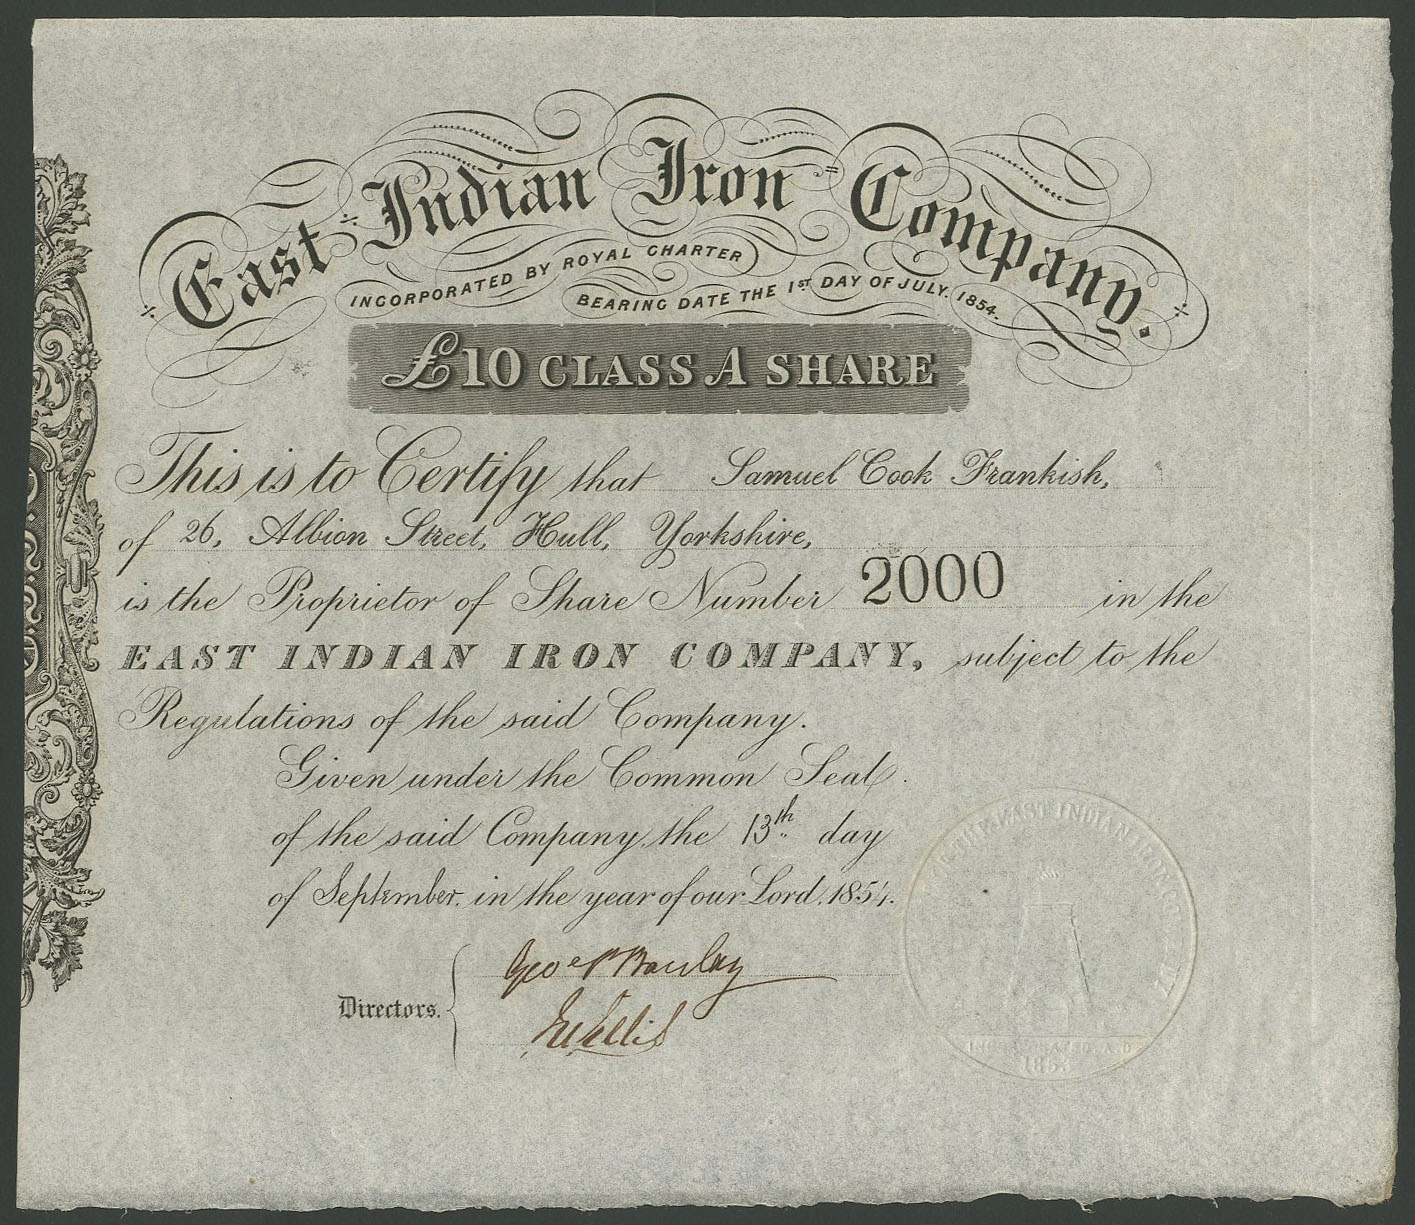 East Indian Iron Company.
INCORPORATED BY ROYAL CHARTER
BEARING DATE THE 1ST DAY OF JULY. 1854.
£10 CLASS A SHARE
This is to Certify that Samuel Cook Frankish,
of 26, Albion Street, Hull, Yorkshire,
is the Proprietor of Share Number 2000 in the
EAST INDIAN IRON COMPANY, subject to the
Regulations of the said Company.
Given under the Common Seal
of the said Company, the 13th day
of September. in the year of our Lord. 1854.
Geo P Barclay
Directors.
Ellis
THE EAST INDIAN IRON
A.D